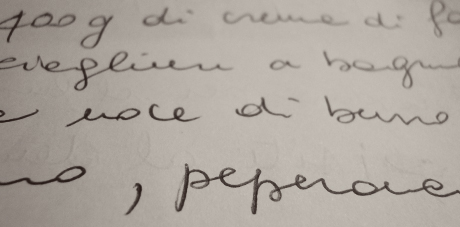 400g di creme di fo
a bagn
e noce di burro
no, peperone